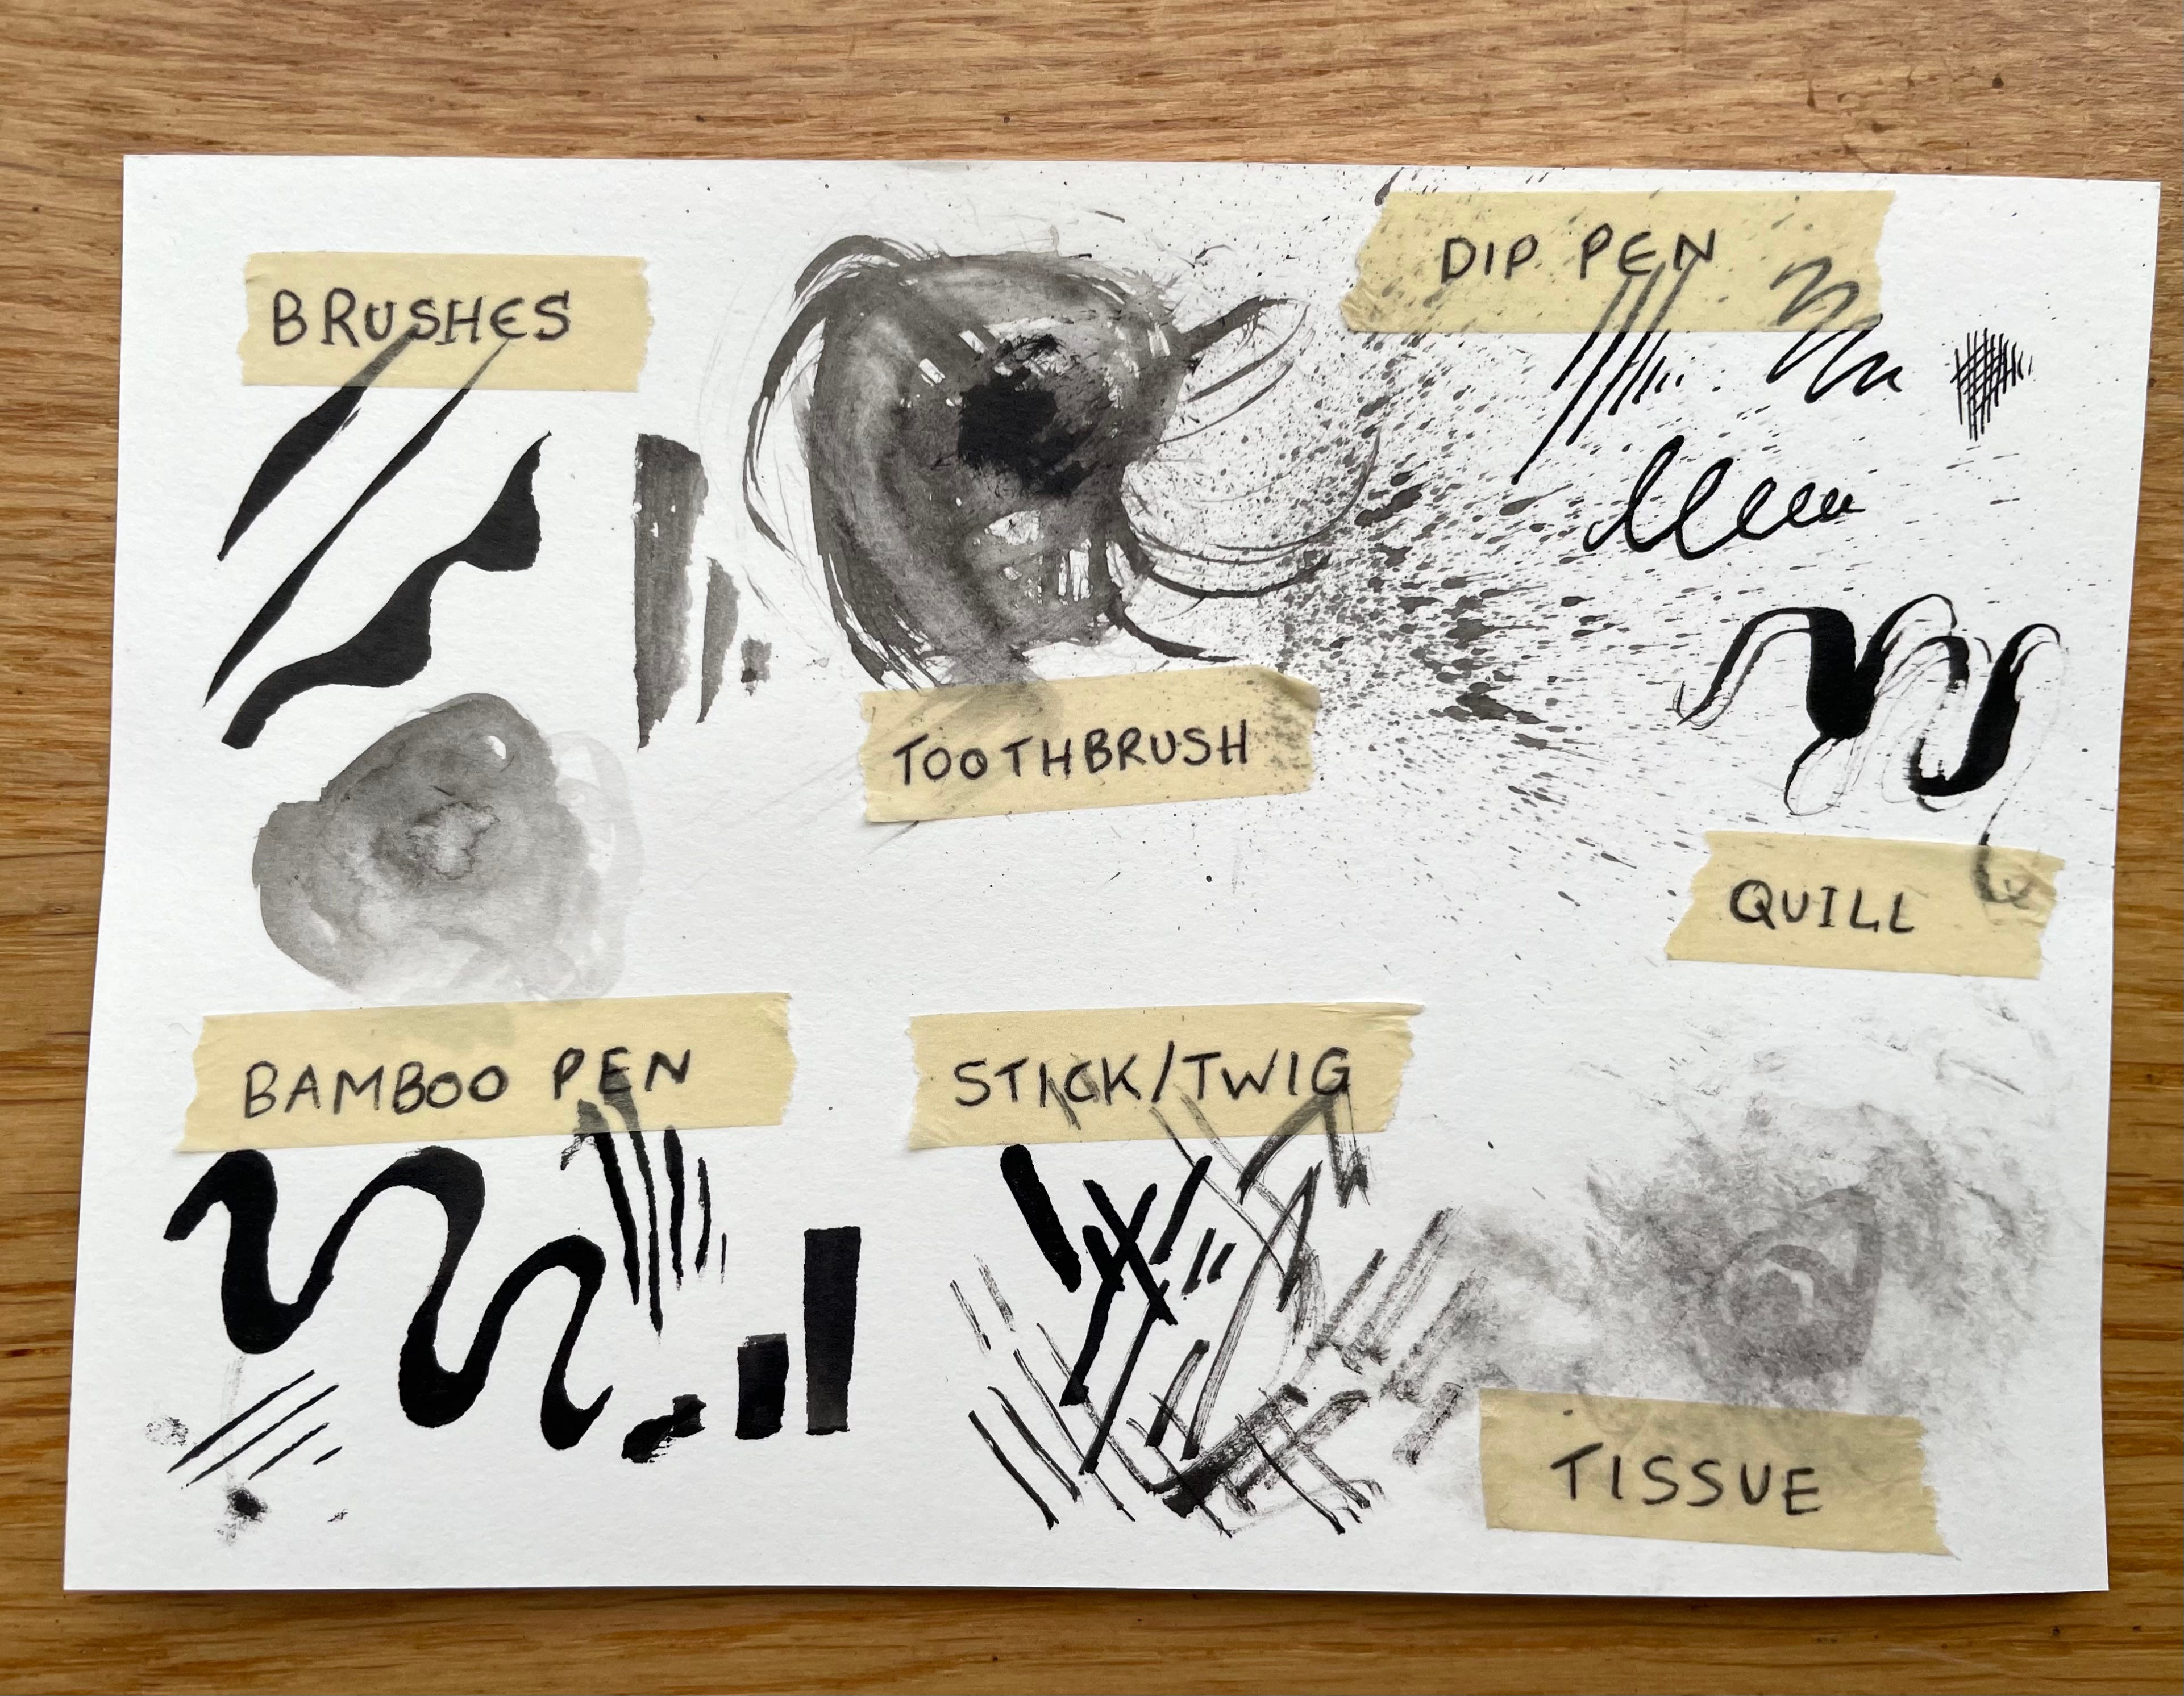 BRUSHES
DIP PEN
TOOTHBRUSH
QUILL
BAMBOO PEN
STICK/TWIG
TISSUE